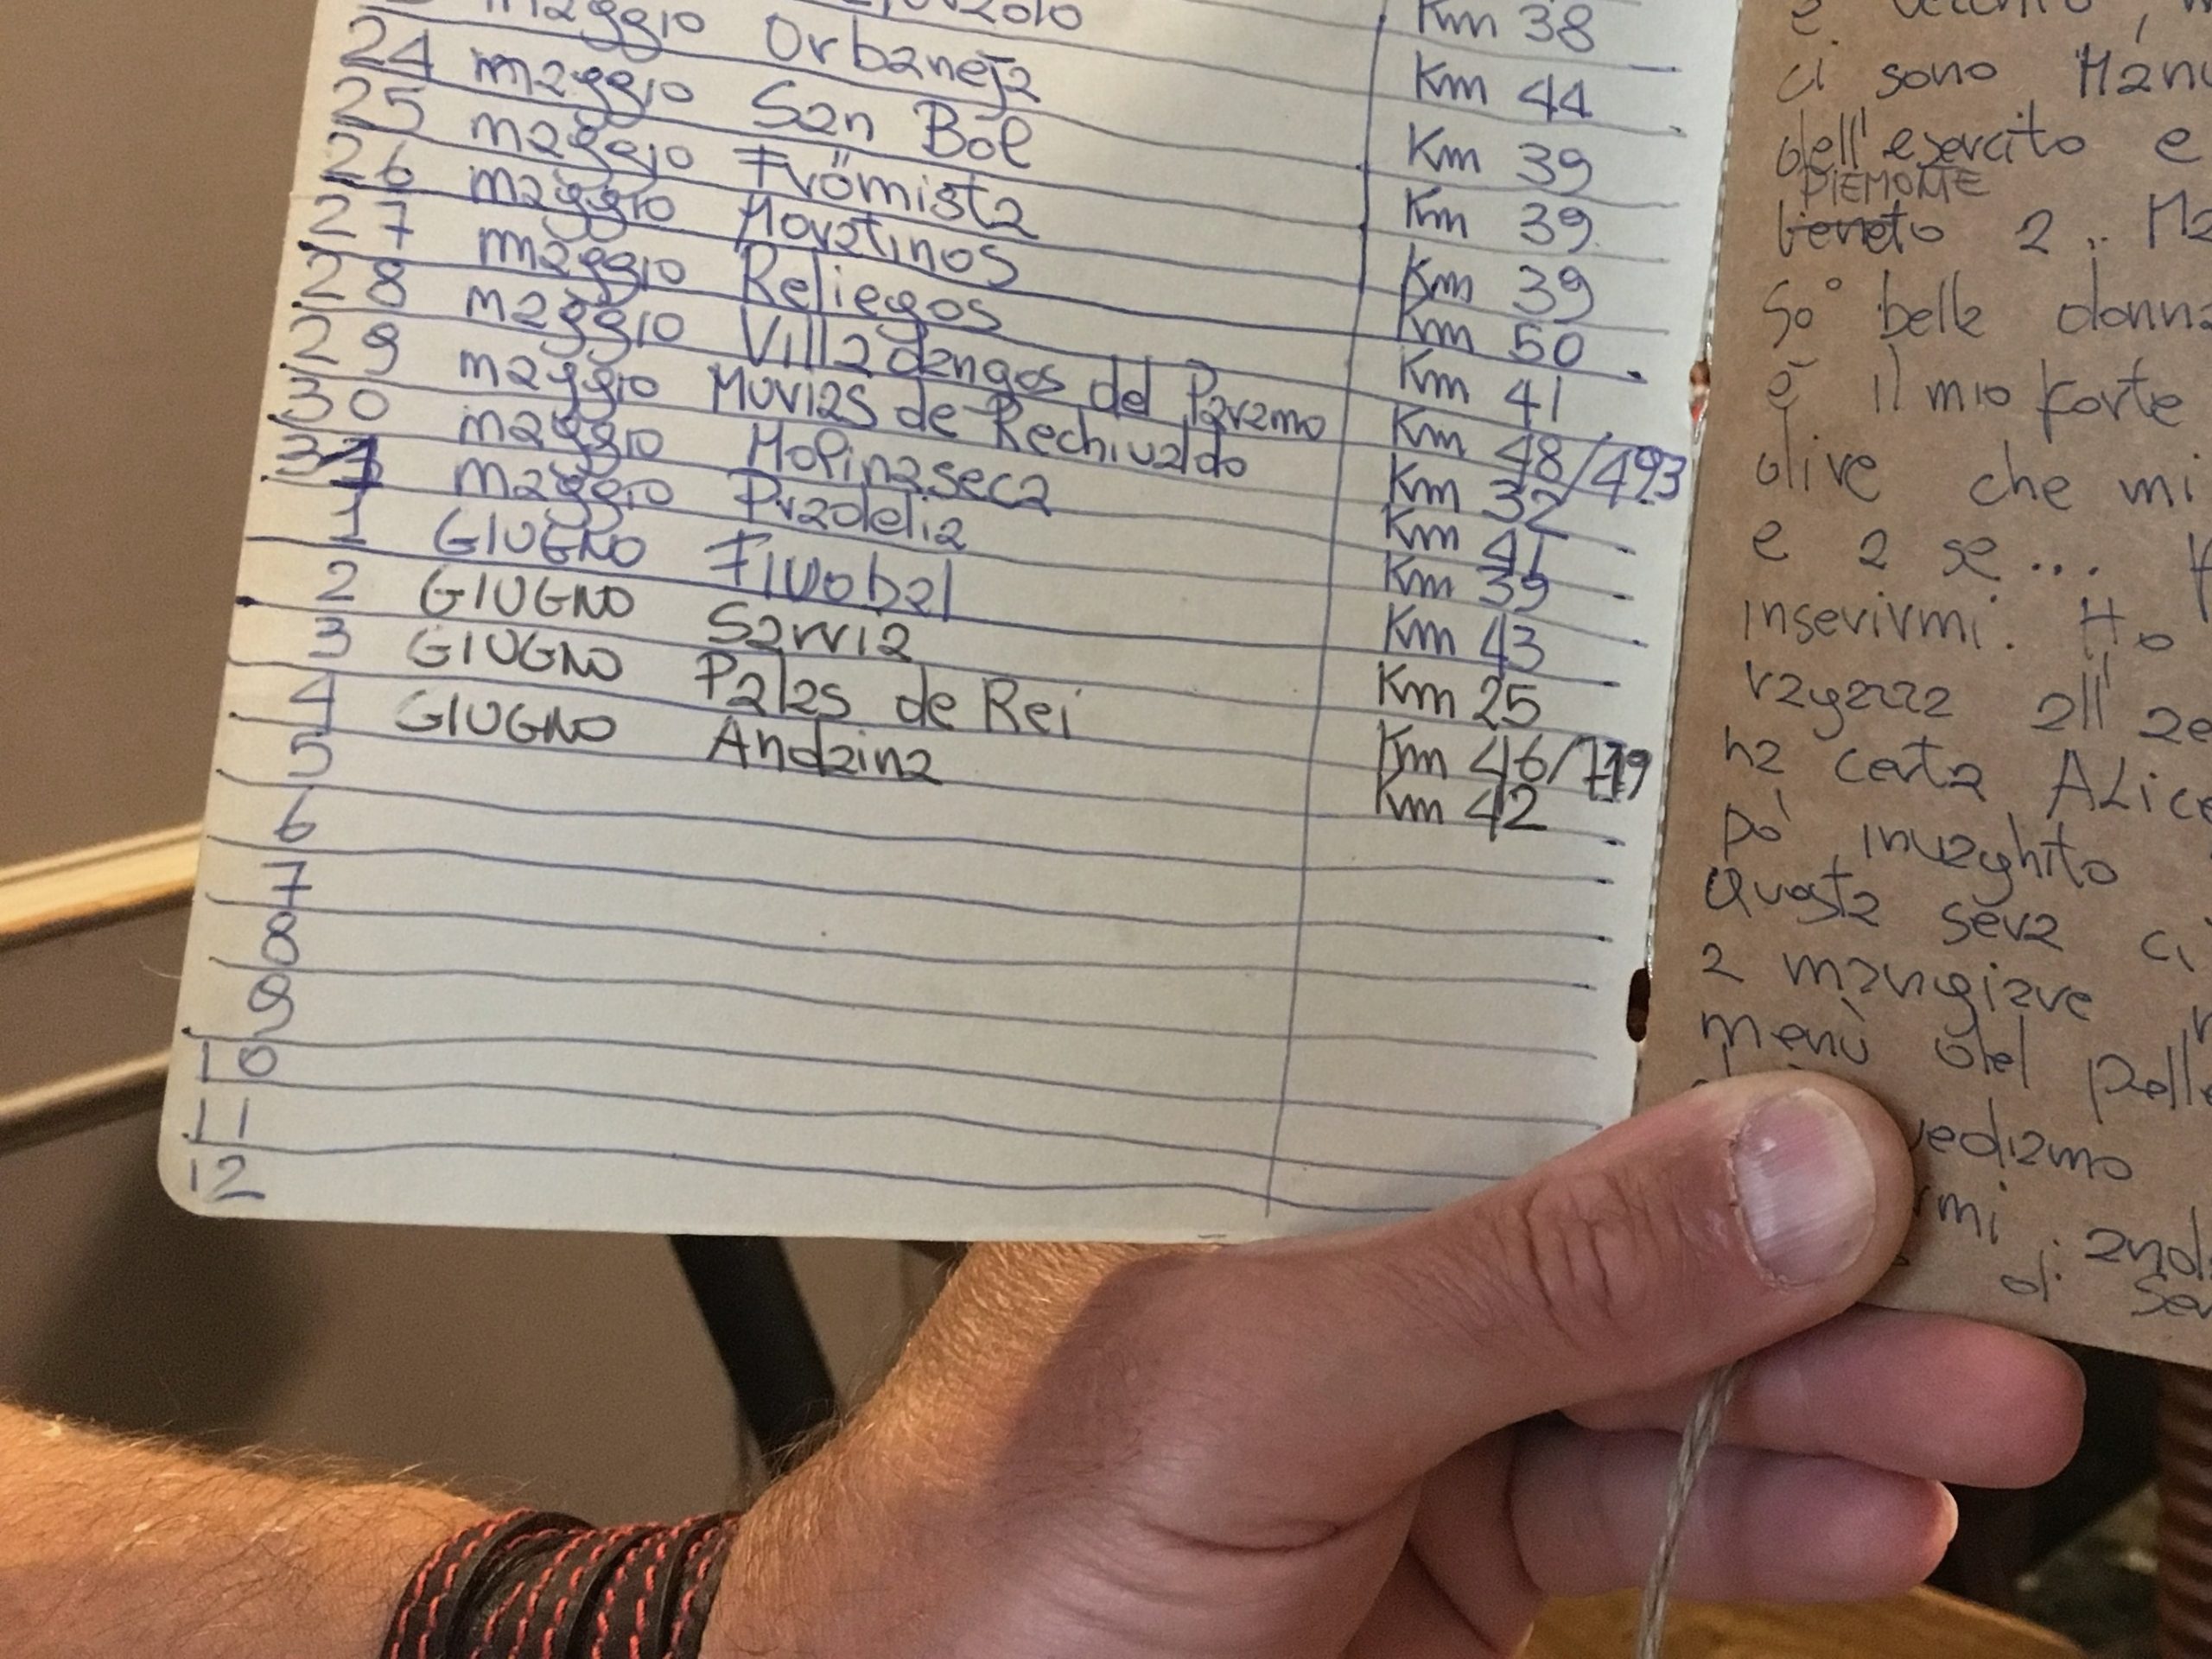 Km 38
Km 44
maggio Orbaneja Km 39
24 maggio San Bol Km 39
25 maggio Frömista Km 39
26 maggio Moratinos Km 50
27 maggio Reliegos Km 41
28 maggio Villadangos del Paramo Km 48/493
29 maggio Murias de Rechivaldo Km 32
30 maggio Molinaseca Km 41
31 maggio Pradelia Km 39
1 GIUGNO Fiuobal Km 43
2 GIUGNO Sarria Km 25
3 GIUGNO Palas de Rei Km 46/719
4 GIUGNO Andaina Km 42
5
6
7
8
9
10
11
12
e vecchio,
ci sono Manu
dell'esercito e
PIEMONTE
Veneto 2 .. Ma
So belle donna
è il mio forte
olive che mi
e a se...
inserirmi. Ho
ragazza all'ae
na certa ALice
pò invaghito
Questa sera ci
a mangiare
menù del pelle
vediamo
rmi . anda
di Ser